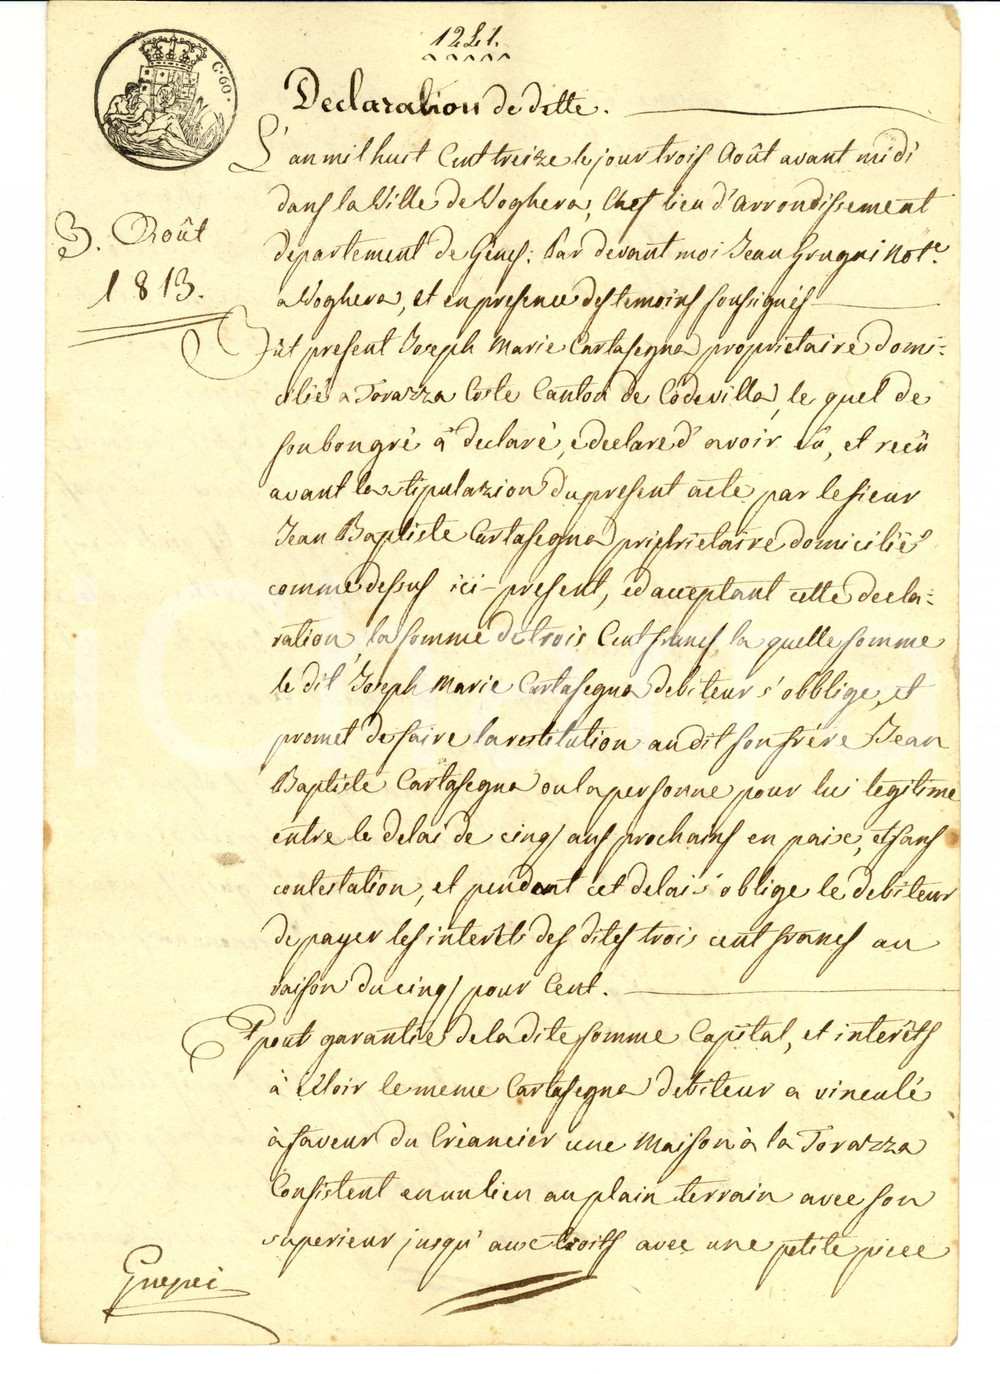 1241.
C. 60.
Declaration de dette.
L'an mil huit Cent treize le jour trois Août avant midi
dans la Ville de Voghera, Chef lieu d'arrondissement
3. Août
1813.
departement de Gênes: Par devant moi Jean Grugni Not.e
a Voghera, et en presence des temoins sousignés
Fût present Joseph Marie Cartasegna propriétaire domi-
cilié a Torazza Coste Canton de Codevilla, le quel de
son bon gré a declaré, e declare d'avoir eû, et reçû
avant la stipulazion du present acte par le sieur
Jean Baptiste Cartasegna priprietaire domicilié
comme dessus ici-present, ed acceptant cette decla-
ration, la somme de trois Cent francs la quelle somme
le dit Joseph Marie Cartasegna debiteur s'obblige, et
promet de faire la restitution au dit son frére Jean
Baptiste Cartasegna ou la personne pour lui legitime
entre le delai de cinq ans prochains en paix, et sans
contestation, et pendant cet delai s'oblige le debiteur
de payer les interêts des dites trois cent francs au
raison du cinq pour Cent.
Et pout garantie de la dite somme Capital, et interêts
à le même Cartasegna debiteur a vinculé
à faveur du Créancier une Maison à la Torazza
Consistent en un lieu au plain terrain avec son
superieur jusqu' aux toits avec une petite piece